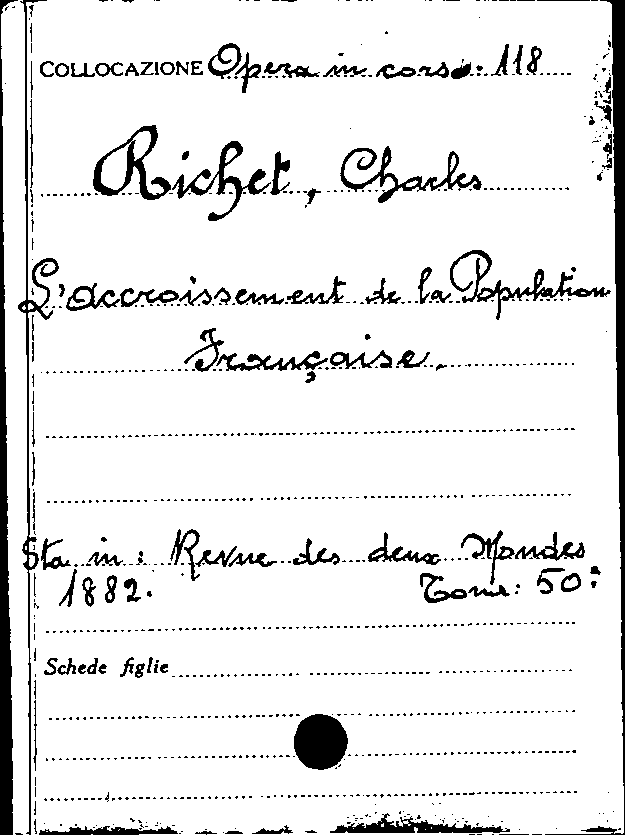 COLLOCAZIONE Opera in corso. 118
Richet, Charles
L'accroissement de la Population
Française.
Sta in: Revue des deux Mondes
1882. Tome: 50º
Schede figlie